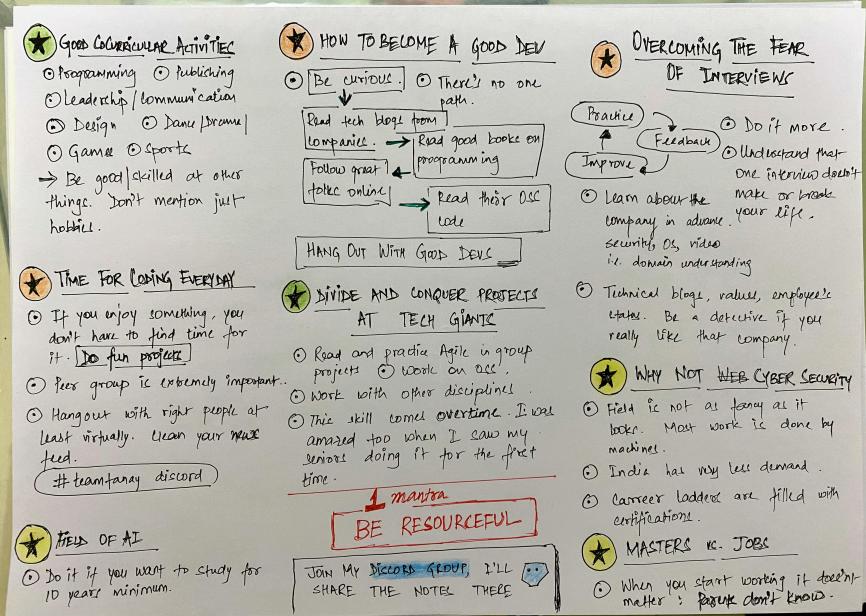 GOOD COCURRICULAR ACTIVITIES
Programming Publishing
Leadership/Communication
Design Dance/Drama/
Games Sports
→ Be good/skilled at other
things. Don't mention just
hobbies.
TIME FOR CODING EVERYDAY
If you enjoy something, you
don't have to find time for
it. Do fun projects
Peer group is extremely important..
Hangout with right people at
least virtually. Clean your news
feed.
#teamtanay discord
FIELD OF AI
Do it if you want to study for
10 years minimum.
HOW TO BECOME A GOOD DEV
Be curious. There's no one
path.
Read tech blogs from
companies. → Read good books on
programming
Follow great
folks online
Read their OSS
code
HANG OUT WITH GOOD DEVS
DIVIDE AND CONQUER PROJECTS
AT TECH GIANTS
Read and practice Agile in group
projects Work on OSS.
Work with other disciplines.
This skill comes overtime. I was
amazed too when I saw my
seniors doing it for the first
time.
1 mantra
BE RESOURCEFUL
JOIN MY DISCORD GROUP, I'LL
SHARE THE NOTES THERE
OVERCOMING THE FEAR
OF INTERVIEWS
Practice
Feedback
Improve
Do it more.
Understand that
one interview doesn't
make or break
your life.
Learn about the
company in advance.
security, OS, video
i.e. domain understanding
Technical blogs, values, employee's
states. Be a detective if you
really like that company.
WHY NOT WEB CYBER SECURITY
Field is not as fancy as it
looks. Most work is done by
machines.
India has very less demand.
Carreer ladders are filled with
certifications.
MASTERS vs. JOBS
When you start working it doesn't
matter; Parents don't know.